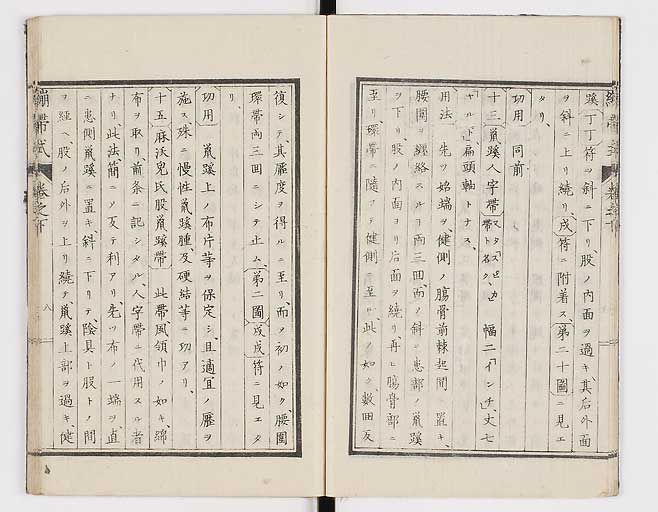 蹊〔丁丁〕符ヲ斜ニ下リ、股ノ内面ヲ過キ、其后外面
ヲ斜ニ上リ繞リ、〔戌〕符ニ附着ス、〔第二十圖〕ニ見エ
タリ、
功用 同前
十三鼠蹊人字帶 幅二「インチ、丈七
「ヤルド」扁頭軸トナス、
用法 先ツ始端ヲ、健側ノ腸骨前棘起間ニ置キ、
腰圍ヲ纏絡スルヿ両三回、而ノ斜ニ患部ノ鼠蹊
ヲ下リ、股ノ内面ヨリ后面ヲ繞リ、再ヒ腸骨部ニ
至リ、環帶ニ隨フテ健側ニ至ル、此ノ如ク數回反
復シテ其厴度ヲ得ルニ至リ、而ノ初ノ如ク腰圍
環帶両三回ニシテ止ム、〔第二圖〕〔戌戌〕符ニ見エタ
リ、
功用 鼠蹊上ノ布片等ヲ保定シ、且適宜ノ壓ヲ
施ス、殊ニ慢性鼠蹊腫、及硬結等ニ功アリ、
十五麻沃兒氏股鼠蹊帶 此帶風領巾ノ如キ、綿
布ヲ取リ、前条ニ記シタル、人字帶ニ代用スル者
ナリ、此法簡ニノ反テ利アリ、先ツ布ノ一端ヲ、直
ニ患側鼠蹊ニ置キ斜ニ下リテ、陰具ト股トノ間
ヲ經ヘ、股ノ后外ヲ上リ繞テ、鼠蹊上部ヲ過キ、健
繃帶式 卷之下
八